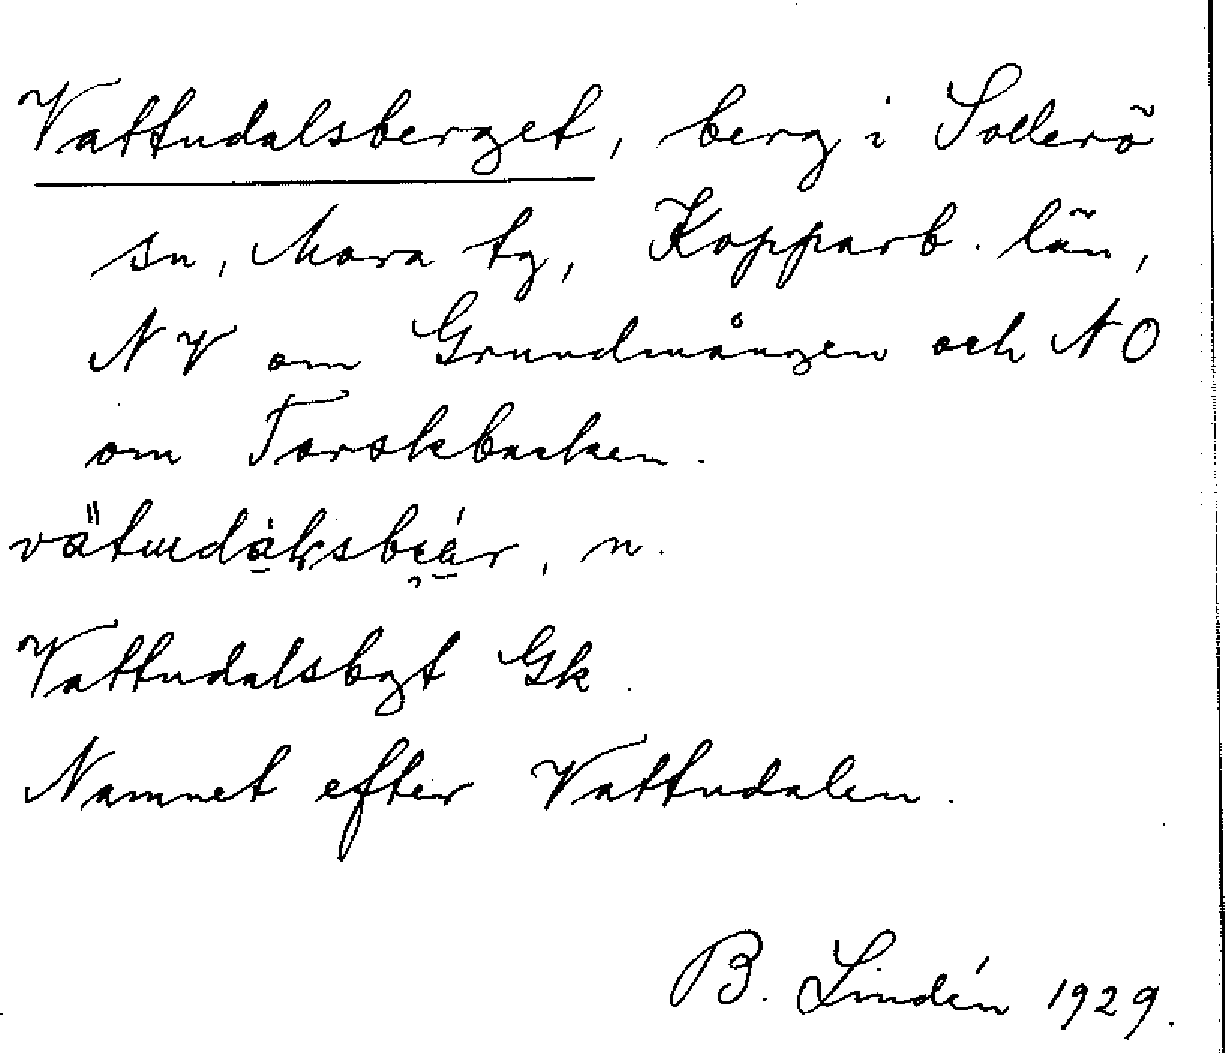 Vattudalsberget, berg i Sollerö
sn, Mora tg, Kopparb. län,
NV om Grundmången och NO
om Torskbacken.
n.
Vattudalsbgt Gk.
Namnet efter Vattudalen.
B. Lindén 1929.